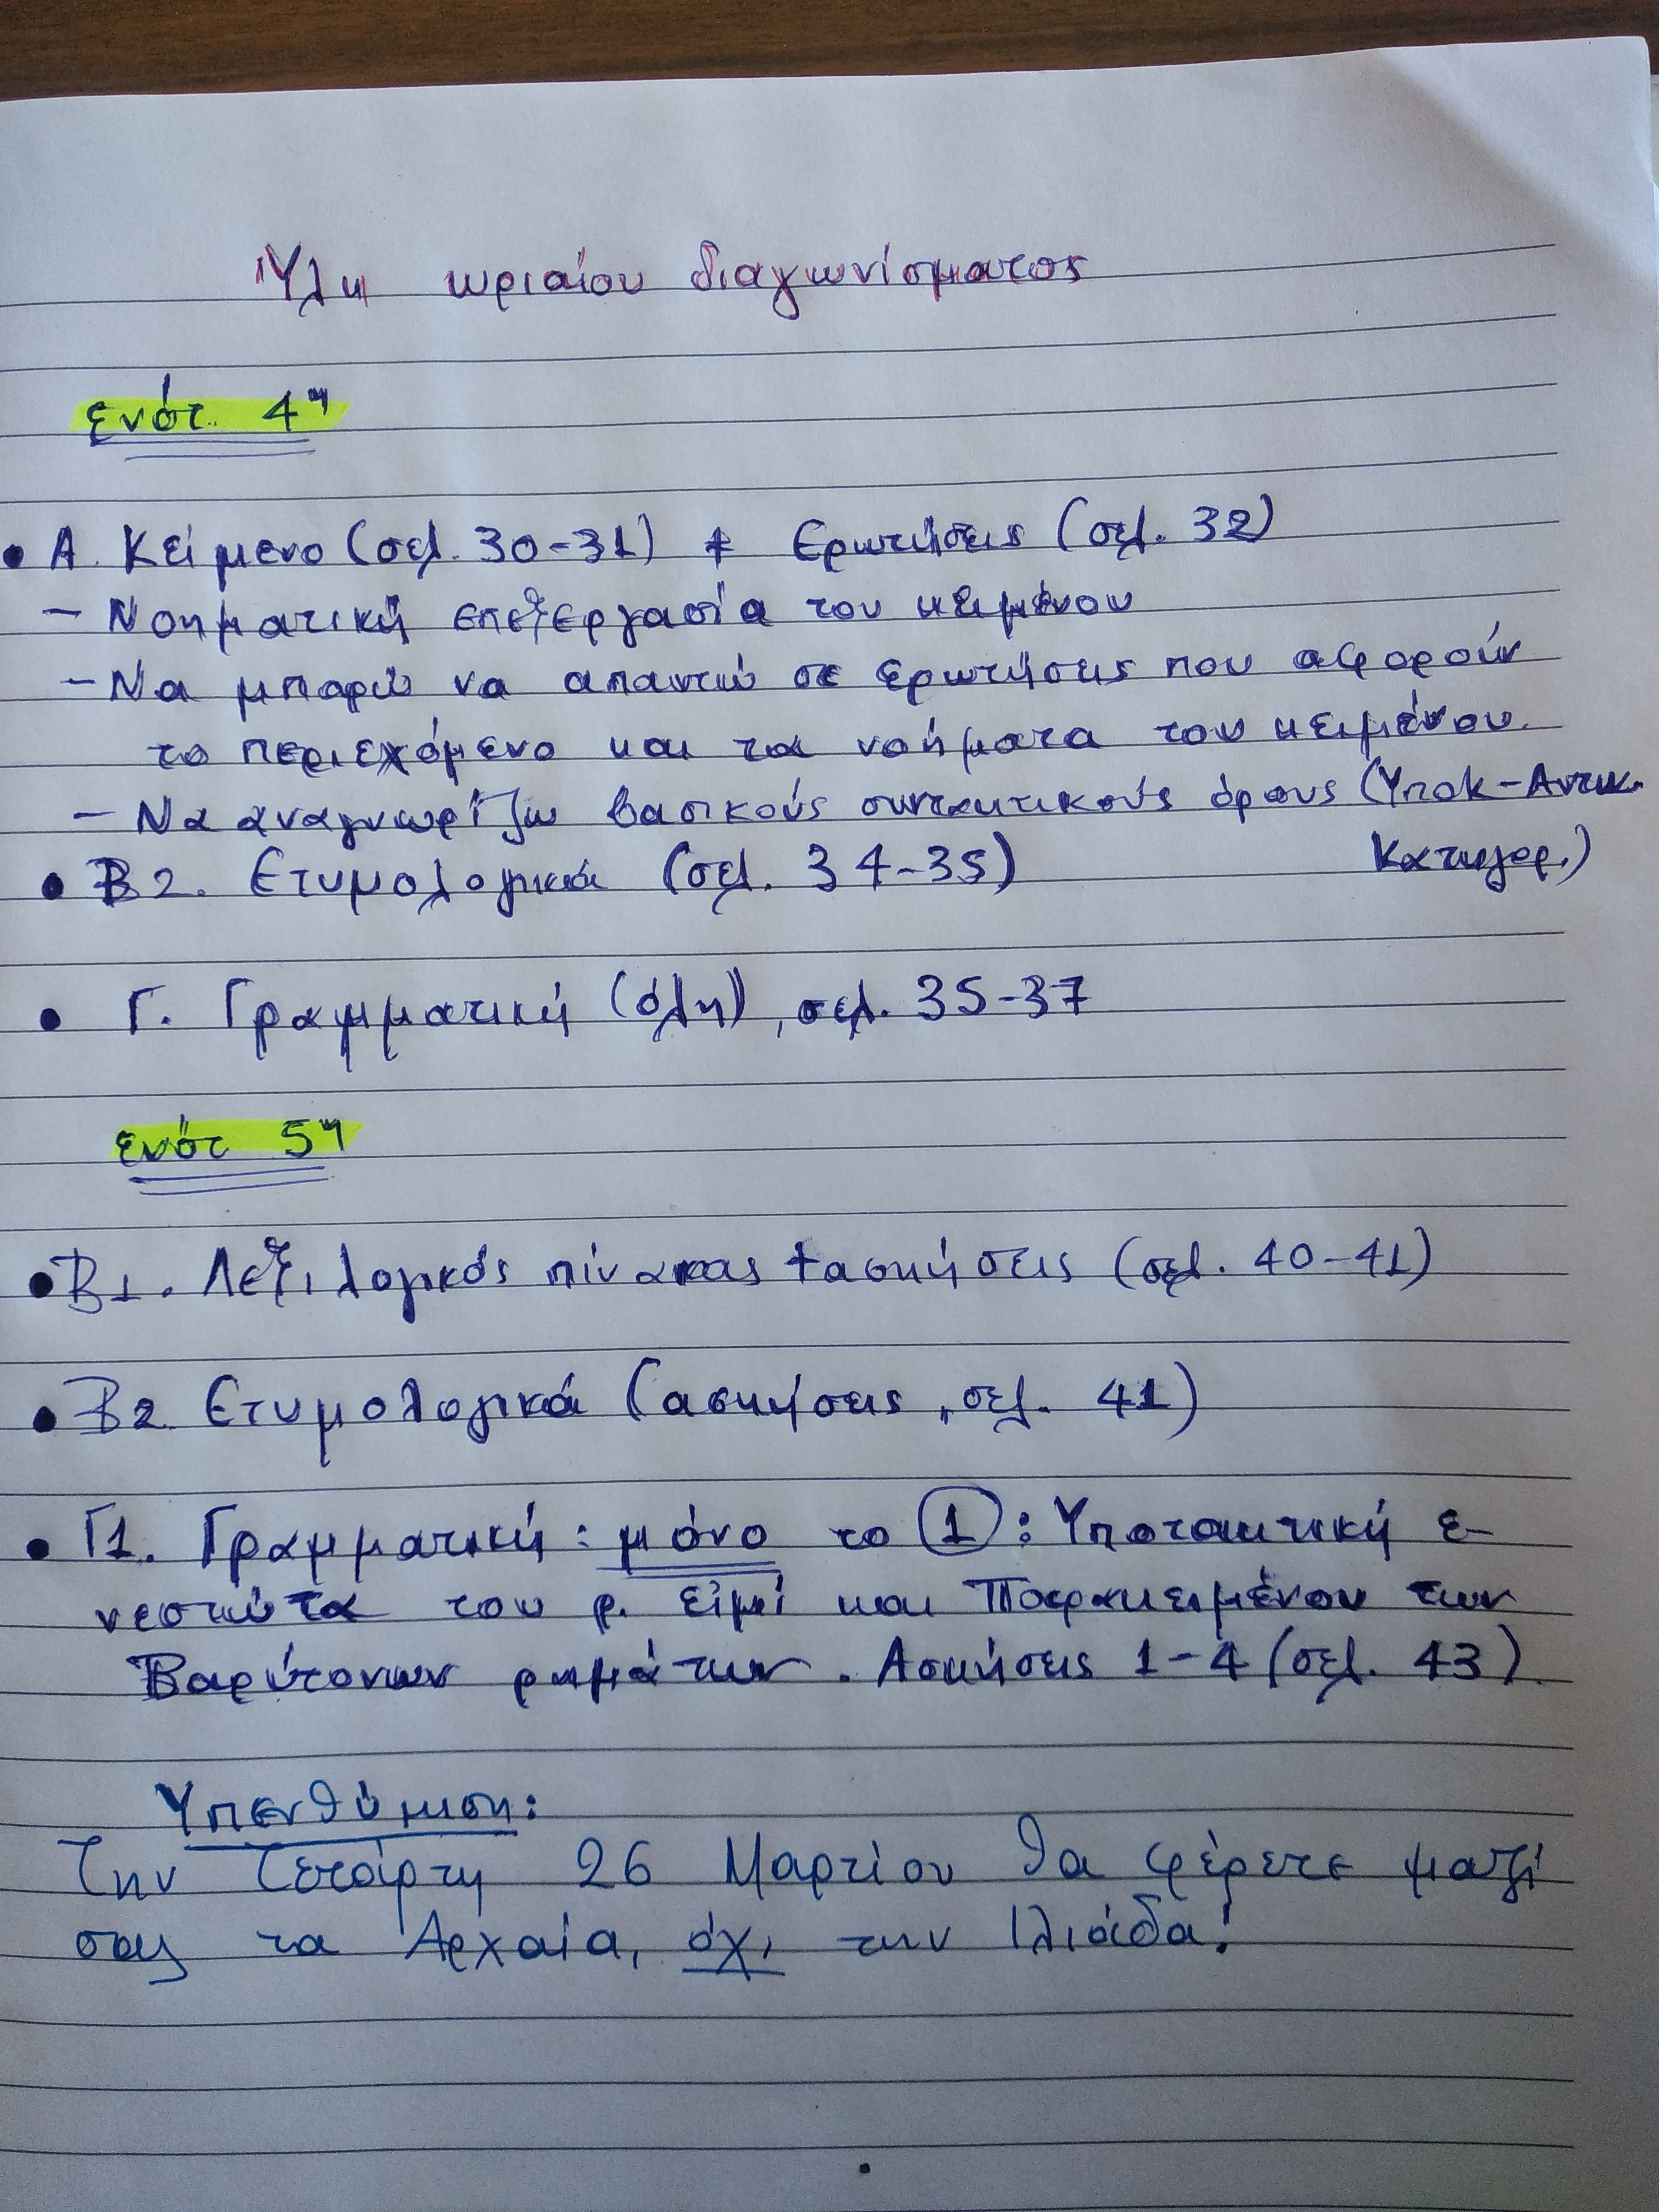 Ύλη ωριαίου διαγωνίσματος
ενότ. 4η
• Α. Κείμενο (σελ. 30-31) + Ερωτήσεις (σελ. 32)
- Νοηματική επεξεργασία του κειμένου
- Να μπορώ να απαντώ σε ερωτήσεις που αφορούν
το περιεχόμενο και τα νοήματα του κειμένου.
- Να αναγνωρίζω βασικούς συντακτικούς όρους (Υποκ-Αντικ.
Κατηγορ.)
• Β2. Ετυμολογικά (σελ. 34-35)
• Γ. Γραμματική (όλη), σελ. 35-37
ενότ 5η
• Β1. Λεξιλογικός πίνακας + ασκήσεις (σελ. 40-41)
• Β2 Ετυμολογικά (ασκήσεις, σελ. 41)
• Γ1. Γραμματική: μόνο το 1: Υποτακτική ε-
νεστώτα του ρ. εἰμί και Παρακειμένου των
Βαρύτονων ρημάτων. Ασκήσεις 1-4 (σελ. 43)
Υπενθύμιση:
Την Τετάρτη 26 Μαρτίου θα φέρετε μαζί
σας τα Αρχαία, όχι την Ιλιάδα!